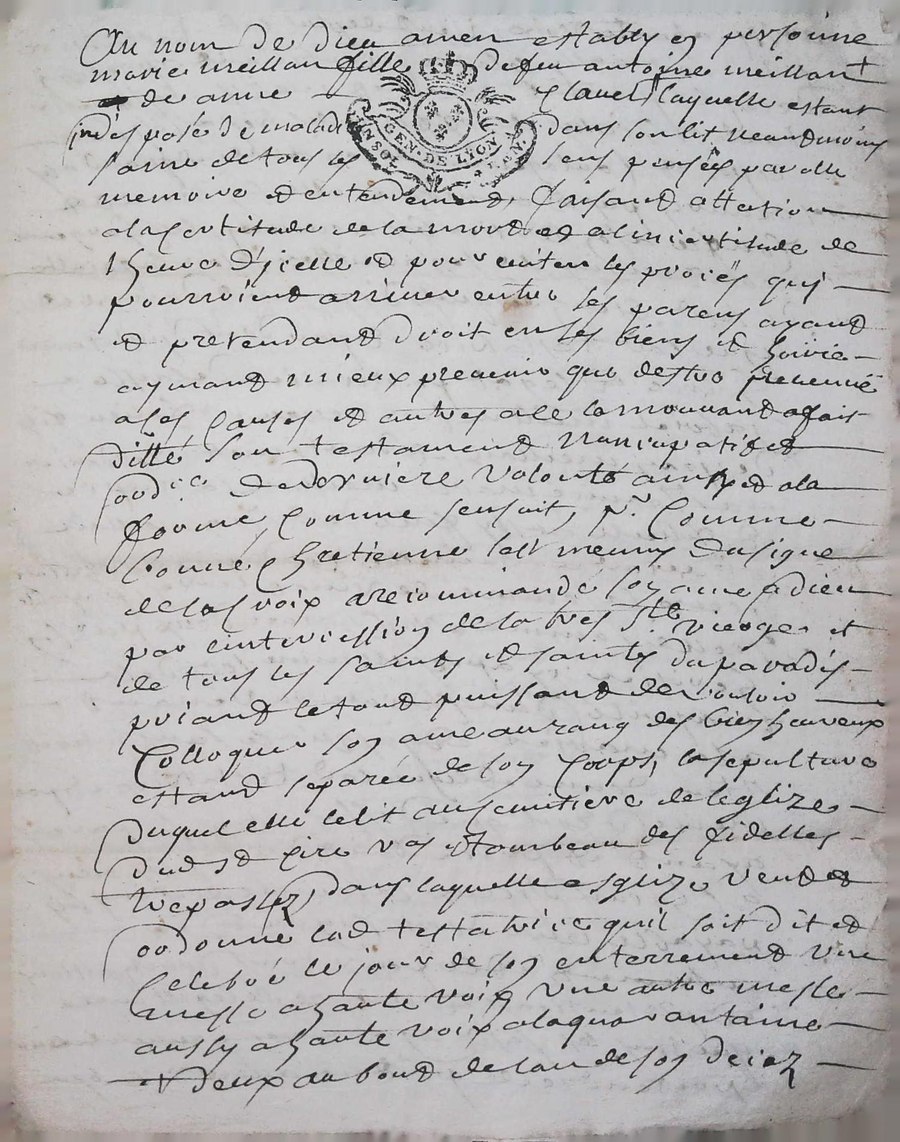 Au nom de dieu amen establye en personne
marie meillan fille de feu antoine meillan +
de anne clavel laquelle estant
indisposé de maladie dans son lit neandmoins
saine de tous ses sens pensées parolle
memoire et entendement, faisand attation
a la certitude de la mort et a lincertitude de
lheure dicelle et pour eviter les procès qui
pourroient arriver entre les parens ayand
et pretendant droit en ses biens et hoirie
aymand mieux prevenir que destre prevenue
a ses causes et autres a ce la mouvand a fait
ditté son testament nuncupatif et
ord.re de derniere volonté ainsy et a la
forme comme sensuit, pr. comme
bonne chretienne sest munye du signe
de la croix a recommandé son ame a dieu
par lintercession de la tres Ste. vierge et
de tous les saints et saintes du paradis
priand le tout puissand de vouloir
Colloquer son ame au rang des bien heureux
estand separée de son corps, la sepulture
duquel elle eslit au semitiere de leglize
dud St cire vas et tombeau des fidelles
trepassez, dans laquelle esglize veut et
ordonne lad testatrice quil soit dit et
celebré le jour de son enterrement une
messe a haute voix une autre messe
aussy a haute voix a la quarantaine
+ deux au bout de lan de son decez
GEN. DE LION